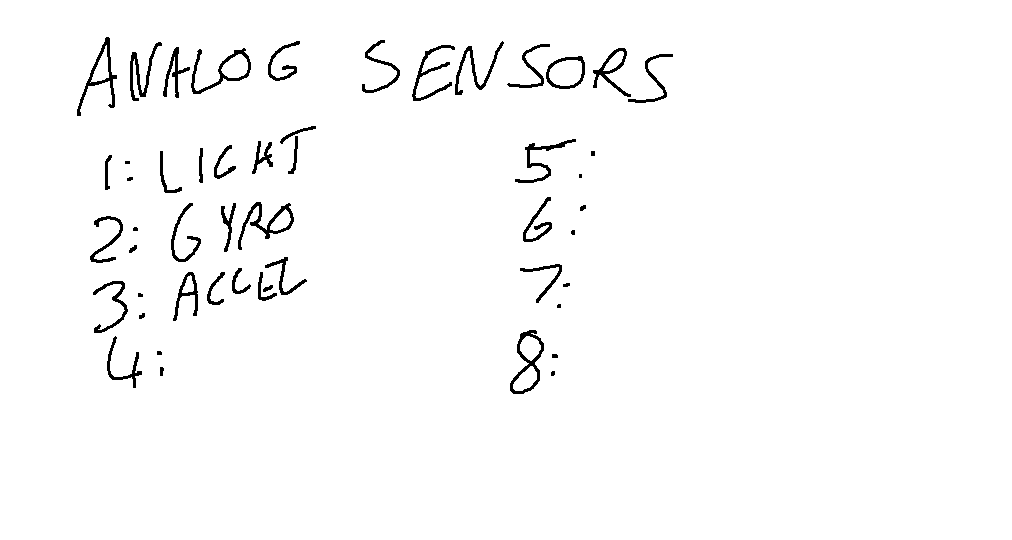 ANALOG SENSORS
1: LIGHT
2: GYRO
3: ACCEL
4:
5:
6:
7:
8: